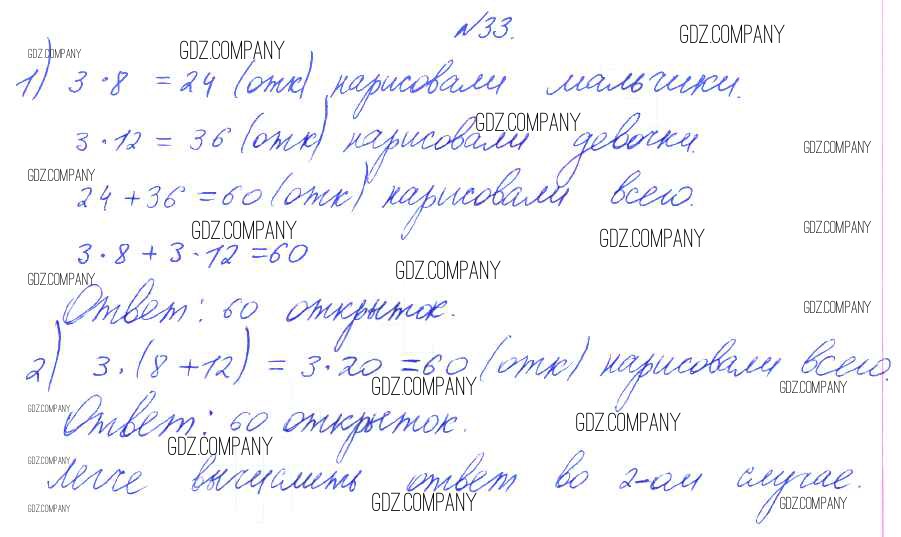 №33.
GDZ.COMPANY GDZ.COMPANY GDZ.COMPANY
1) 3·8 = 24 (отк) нарисовали мальчики.
GDZ.COMPANY
3·12 = 36 (отк) нарисовали девочки.
GDZ.COMPANY
GDZ.COMPANY
24 + 36 = 60 (отк) нарисовали всего.
GDZ.COMPANY GDZ.COMPANY GDZ.COMPANY
3·8 + 3·12 = 60
GDZ.COMPANY GDZ.COMPANY
Ответ: 60 открыток.
GDZ.COMPANY
2) 3·(8 + 12) = 3·20 = 60 (отк) нарисовали всего.
GDZ.COMPANY GDZ.COMPANY
GDZ.COMPANY
Ответ: 60 открыток.
GDZ.COMPANY
GDZ.COMPANY
GDZ.COMPANY
Легче вычислить ответ во 2-ом случае.
GDZ.COMPANY GDZ.COMPANY GDZ.COMPANY